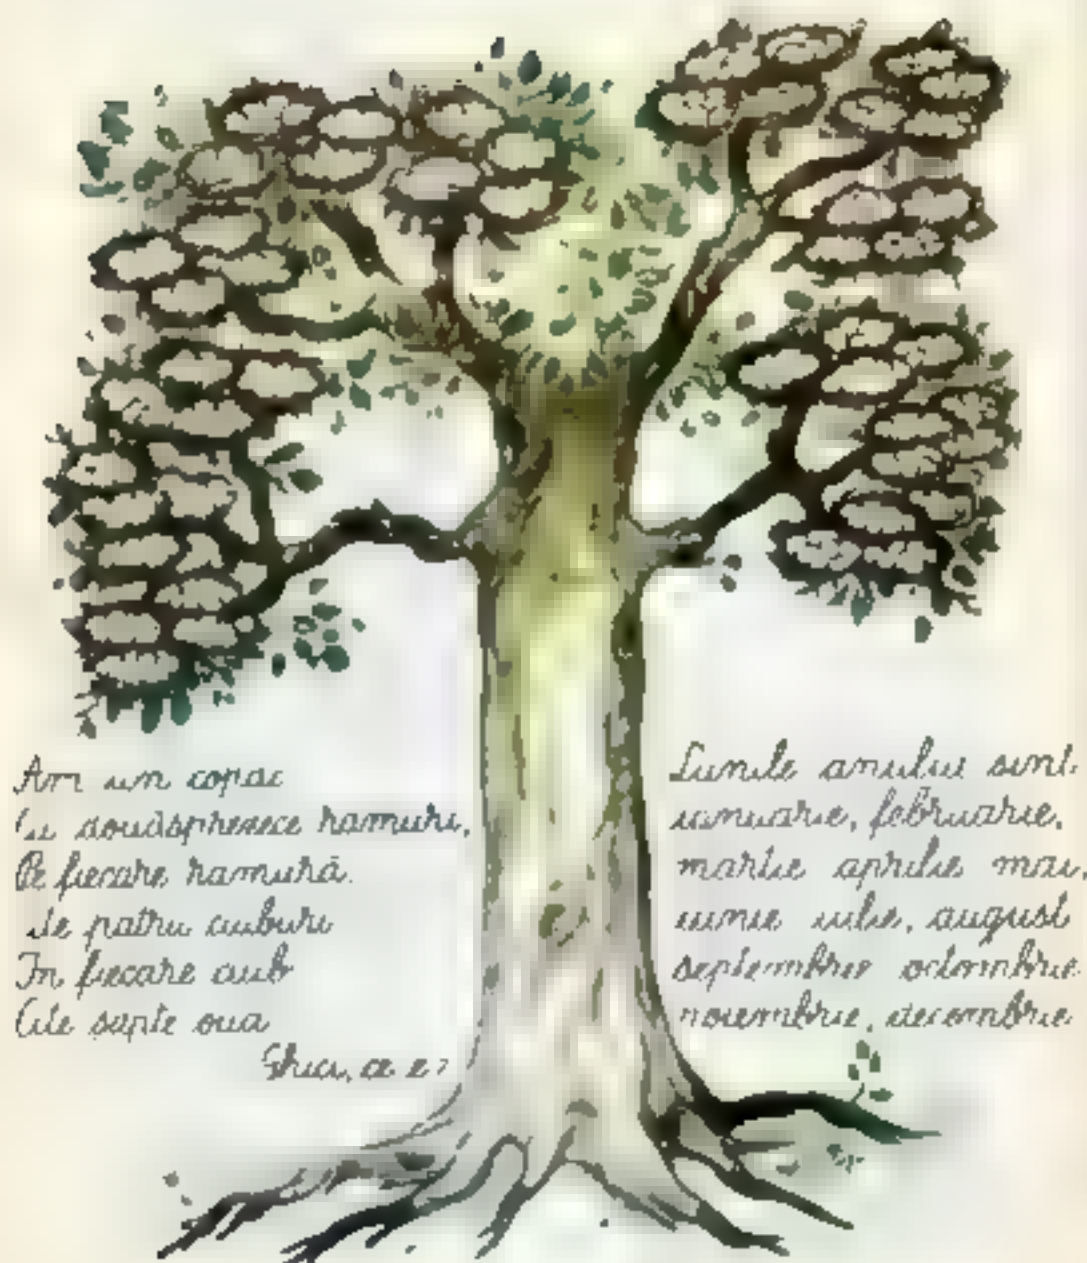 Am un copac
Cu douăsprezece ramuri,
Pe fiecare ramură
Cîte patru cuiburi
În fiecare cuib
Cîte șapte ouă
Ghici, ce e?
Lunile anului sînt
ianuarie, februarie,
martie aprilie mai,
iunie iulie, august
septembrie octombrie
noiembrie, decembrie